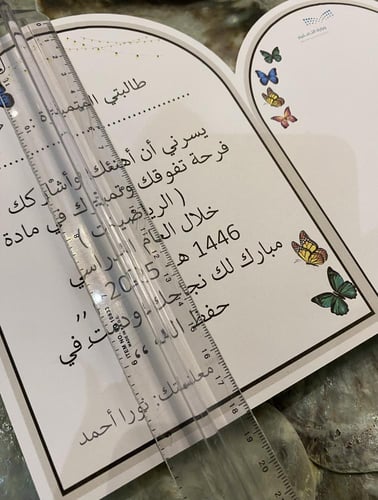 طالبتي المتميزة :
يسرني أن أهنئك وأشاركك
فرحة تفوقك وتميزك في مادة
( الرياضيات )
خلال العام الدراسي
1446 هـ - 2025
مبارك لك نجاحك ، ودمتِ في
حفظ الله ،،
معلمتك: نورا أحمد
16
17
18
19
20
21